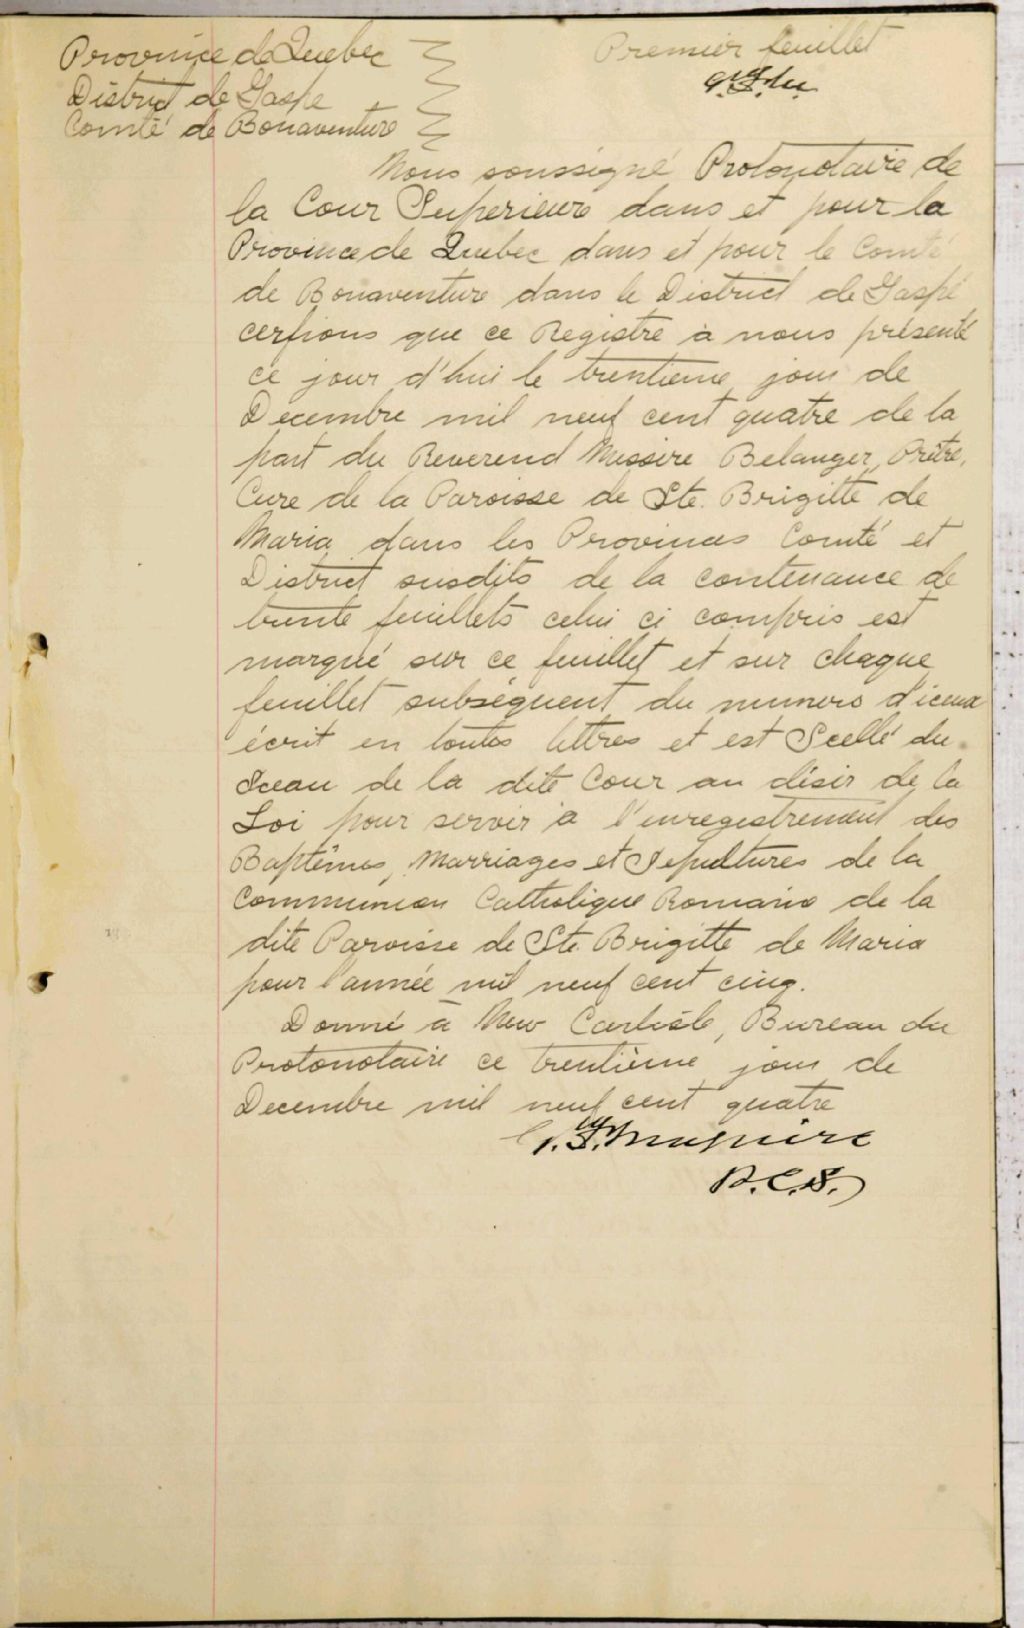 Province de Quebec
District de Gaspe
Comté de Bonaventure
Premier feuillet
Nous soussigné Protonotaire de
la Cour Superieure dans et pour la
Province de Quebec dans et pour le Comté
de Bonaventure dans le District de Gaspé
cerfions que ce Registre à nous présenté
ce jour d'hui le trentieme jour de
Decembre mil neuf cent quatre de la
part du Reverend Messire Belanger, Prêtre,
Cure de la Paroisse de Ste. Brigitte de
Maria dans les Provinces Comté et
District susdits de la contenance de
trente feuillets celui ci compris est
marqué sur ce feuillet et sur chaque
feuillet subséquent du numero d'iceux
écrit en toutes lettres et est Scellé du
Sceau de la dite Cour au désir de la
Loi pour servir à l'enregestrement des
Baptêmes, Marriages et Sepultures de la
Communion Catholique Romaine de la
dite Paroisse de Ste. Brigitte de Maria
pour l'année mil neuf cent cinq.
Donné à New Carlisle, Bureau du
Protonotaire ce trentième jour de
Decembre mil neuf cent quatre
P.C.S.